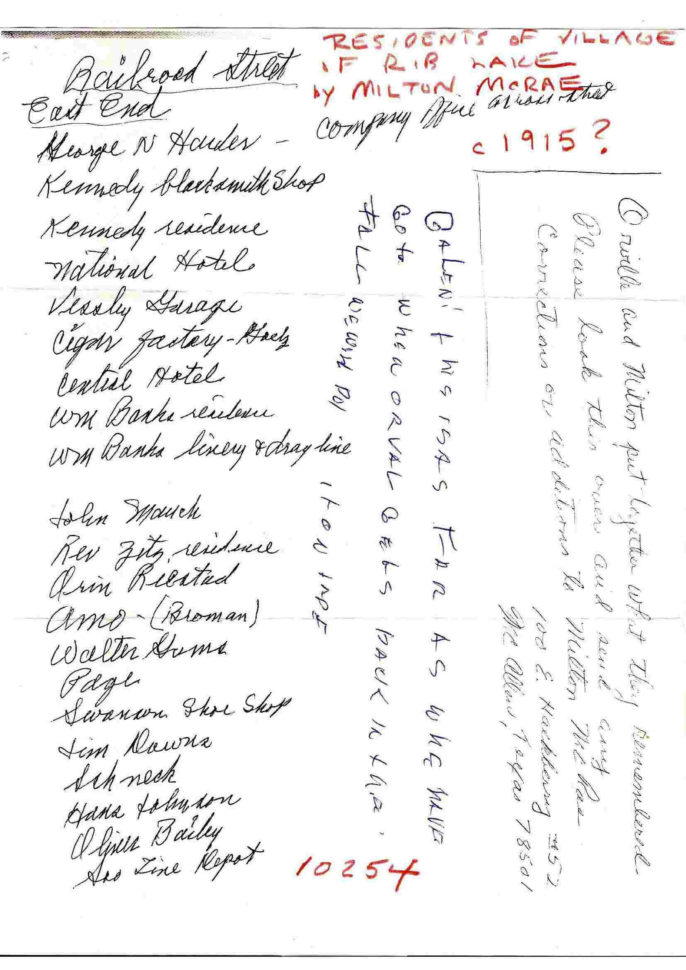 RESIDENTS OF VILLAGE
OF RIB LAKE
BY MILTON McRAE
c 1915?
Railroad Street
East End
George N Harder - Company Office across street
Kennedy blacksmith Shop
Kennedy residence
National Hotel
Vessly Garage
Cigar factory -
Central Hotel
Wm Banks residence
Wm Banks livery & dray line
John Mauch
Rev Zitz residence
Orin Recstad
Amo - (Broman)
Walter Gums
Page
Swanson Shoe Shop
Jim Downs
Schneck
Hans Johnson
Oliver Bailey
Soo Line Depot
10254
this is as far as whe have
Go to when Orval gets back in tha
Fall
Orville and Milton put together what they remembered
Please look this over and send any
Corrections or additions to Milton McRae
100 E. Hackberry #52
Mc Allen, Texas 78501